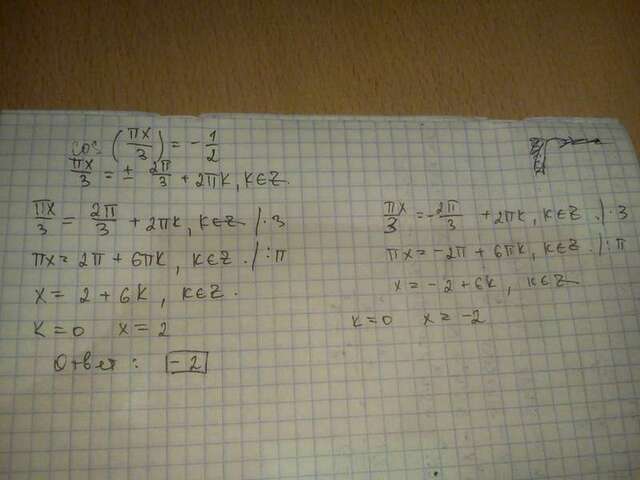 cos (πx/3) = -1/2
πx/3 = ± 2π/3 + 2πk, k∈Z
πx/3 = 2π/3 + 2πk, k∈Z /·3
πx = 2π + 6πk, k∈Z. /:π
x = 2 + 6k, k∈Z.
k=0 x=2
πx/3 = -2π/3 + 2πk, k∈Z. /·3
πx = -2π + 6πk, k∈Z. /:π
x = -2+6k, k∈Z
k=0 x = -2
Ответ: -2